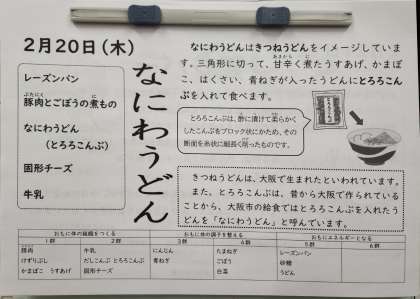 2月20日(木)
レーズンパン
ぶたにく に
豚肉とごぼうの煮もの
なにわうどん
(とろろこんぶ)
固形チーズ
牛乳
なにわうどん
なにわうどんはきつねうどんをイメージしていま
す。三角形に切って、甘辛く煮たうすあげ、かまぼ
こ、はくさい、青ねぎが入ったうどんにとろろこん
ぶを入れて食べます。
とろろこんぶは、酢に漬けて柔らかく
したこんぶをブロック状にかため、その
断面を糸状に細長く削ったものです。
きつねうどんは、大阪で生まれたといわれています。
また、とろろこんぶは、昔から大阪で作られている
ことから、大阪市の給食ではとろろこんぶを入れたう
どんを「なにわうどん」と呼んでいます。
おもに体の組織をつくる おもに体の調子を整える おもにエネルギーになる
1群 2群 3群 4群 5群 6群
豚肉 牛乳 にんじん たまねぎ レーズンパン
けずりぶし だしこんぶ とろろこんぶ 青ねぎ ごぼう 砂糖
かまぼこ うすあげ 固形チーズ 白菜 うどん